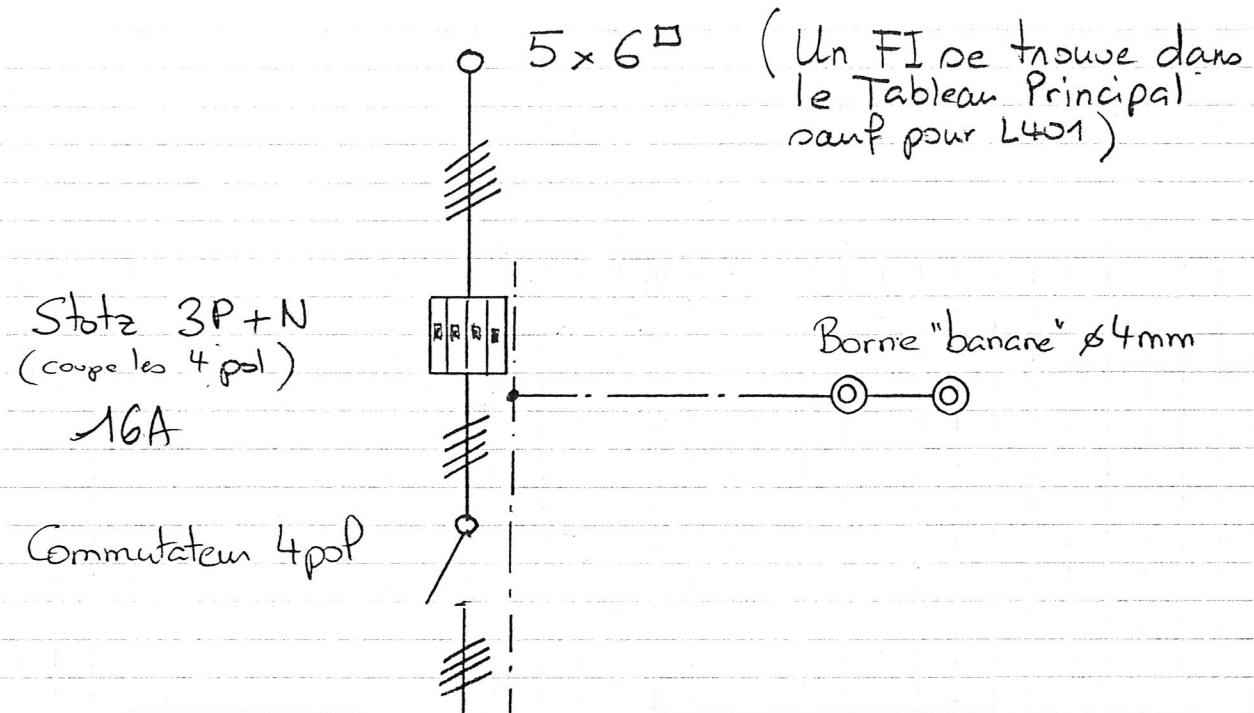 5 x 6 □
(Un FI se trouve dans
le Tableau Principal
sauf pour L401)
Stotz 3P+N
(coupe les 4 pol)
16A
Borne "banane" ø4mm
Commutateur 4pol